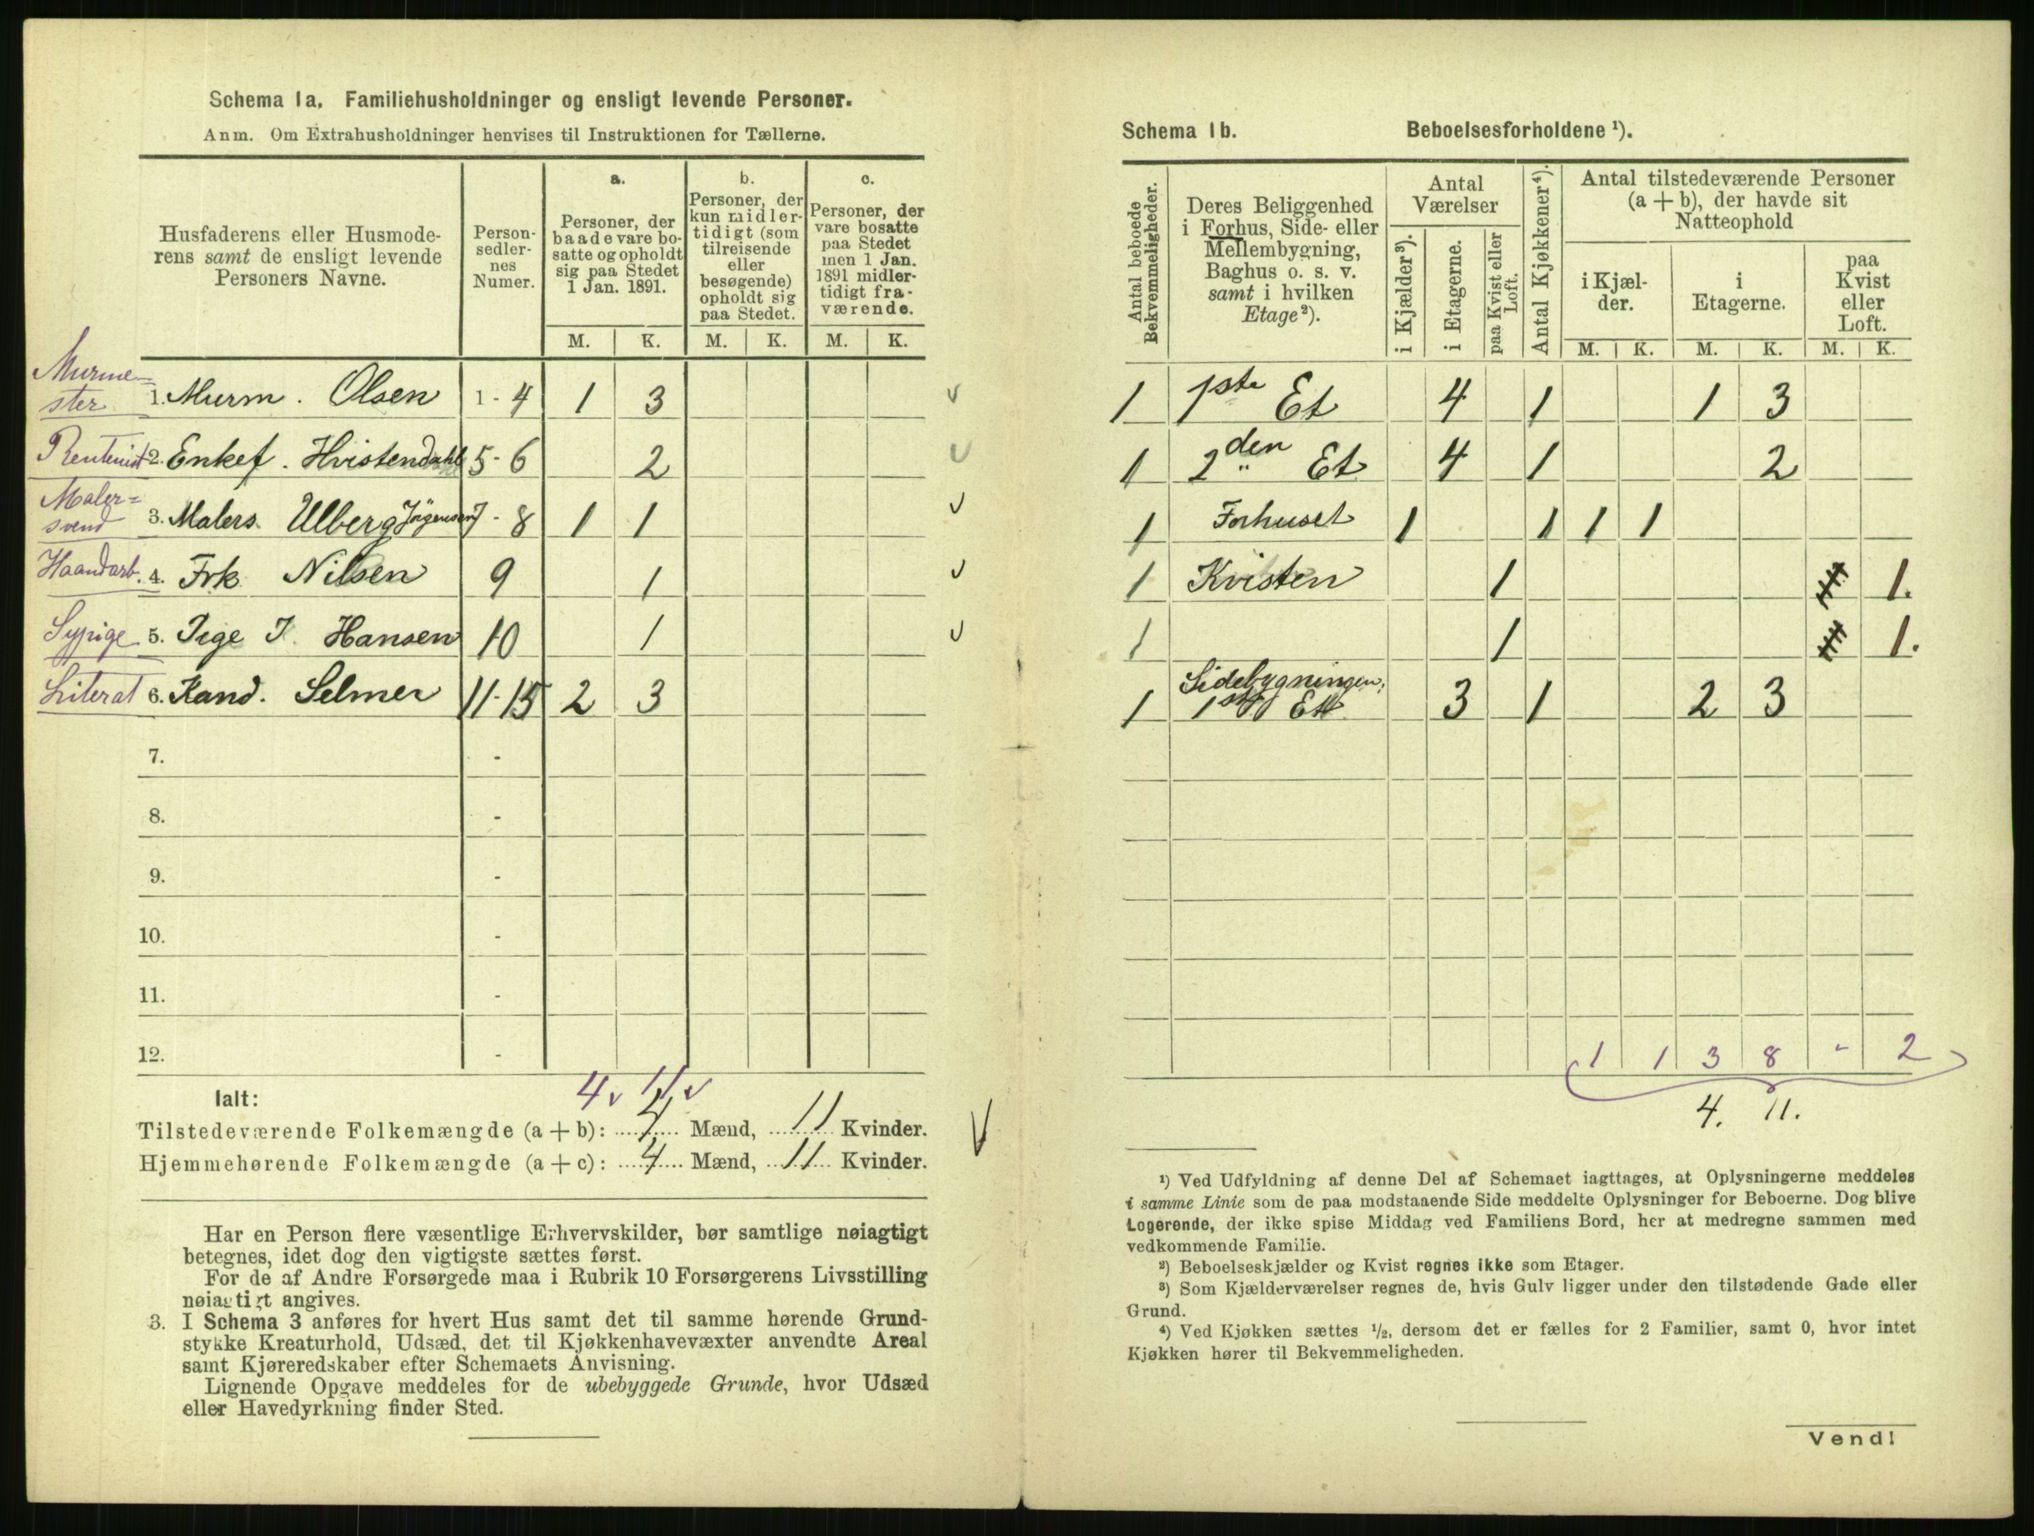 Schema 1a. Familiehusholdninger og ensligt levende Personer.
Anm. Om Extrahusholdninger henvises til Instruktionen for Tællerne.
Husfaderens eller Husmode-
rens samt de ensligt levende
Personers Navne.
Person-
sedler-
nes
Numer.
a.
Personer, der
baade vare bo-
satte og opholdt
sig paa Stedet
1 Jan. 1891.
b.
Personer, der
kun midler-
tidigt (som
tilreisende
eller
besøgende)
opholdt sig
paa Stedet.
c.
Personer, der
vare bosatte
paa Stedet
men 1 Jan.
1891 midler-
tidigt fra-
værende.
M. K. M. K. M. K.
Murme-
ster 1. Murm. Olsen 1 - 4 1 3
Rentenist 2. Enkef. Hvistendahl 5 - 6 2
Maler=
svend 3. Malers. Ulberg Jörgensen 7 - 8 1 1
Haandarb. 4. Frk. Nilsen 9 1
Sypige 5. Pige J. Hansen 10 1
Literat 6. Kand. Selmer 11-15 2 3
7. -
8. -
9. -
10. -
11. -
12. -
4 v 11 v
Ialt:
Tilstedeværende Folkemængde (a + b): 4 Mænd, 11 Kvinder.
Hjemmehørende Folkemængde (a + c): 4 Mænd, 11 Kvinder.
Har en Person flere væsentlige Erhvervskilder, bør samtlige nøiagtigt
betegnes, idet dog den vigtigste sættes først.
For de af Andre Forsørgede maa i Rubrik 10 Forsørgerens Livsstilling
nøiagtigt angives.
3. I Schema 3 anføres for hvert Hus samt det til samme hørende Grund-
stykke Kreaturhold, Udsæd, det til Kjøkkenhavevæxter anvendte Areal
samt Kjøreredskaber efter Schemaets Anvisning.
Lignende Opgave meddeles for de ubebyggede Grunde, hvor Udsæd
eller Havedyrkning finder Sted.
Schema 1b. Beboelsesforholdene ¹).
Antal beboede
Bekvemmeligheder.
Deres Beliggenhed
i Forhus, Side- eller
Mellembygning,
Baghus o. s. v.
samt i hvilken
Etage²).
Antal
Værelser
i Kjælder³).
i Etagerne.
paa Kvist eller
Loft.
Antal Kjøkkener⁴).
Antal tilstedeværende Personer
(a + b), der havde sit
Natteophold
i Kjæl-
der.
i
Etagerne.
paa
Kvist
eller
Loft.
M. K. M. K. M. K.
1 1ste Et 4 1 1 3
1 2den Et 4 1 2
1 Forhuset 1 1 1 1
1 Kvisten 1 1.
1 1 1.
Sidebygningen,
1 1ste Et 3 1 2 3
1 1 3 8 - 2
4. 11.
¹) Ved Udfyldning af denne Del af Schemaet iagttages, at Oplysningerne meddeles
i samme Linie som de paa modstaaende Side meddelte Oplysninger for Beboerne. Dog blive
Logerende, der ikke spise Middag ved Familiens Bord, her at medregne sammen med
vedkommende Familie.
²) Beboelseskjælder og Kvist regnes ikke som Etager.
³) Som Kjælderværelser regnes de, hvis Gulv ligger under den tilstødende Gade eller
Grund.
⁴) Ved Kjøkken sættes ½, dersom det er fælles for 2 Familier, samt 0, hvor intet
Kjøkken hører til Bekvemmeligheden.
Vend!